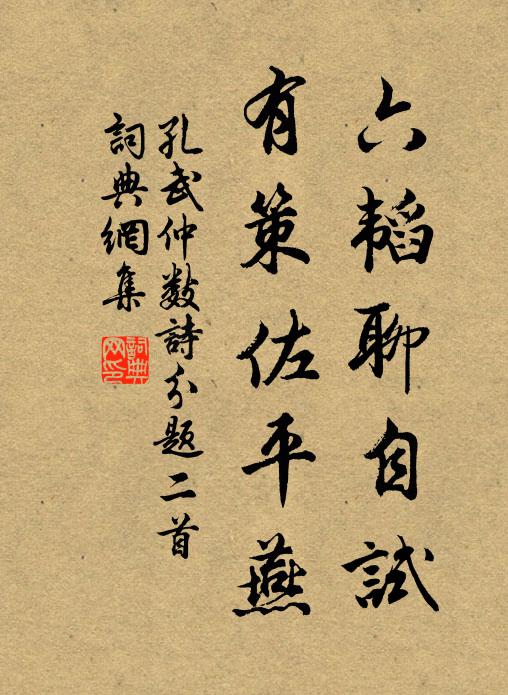 六韬聊自試
有策佐平燕
孔武仲數詩分題二首
詞典網集
詞典网印